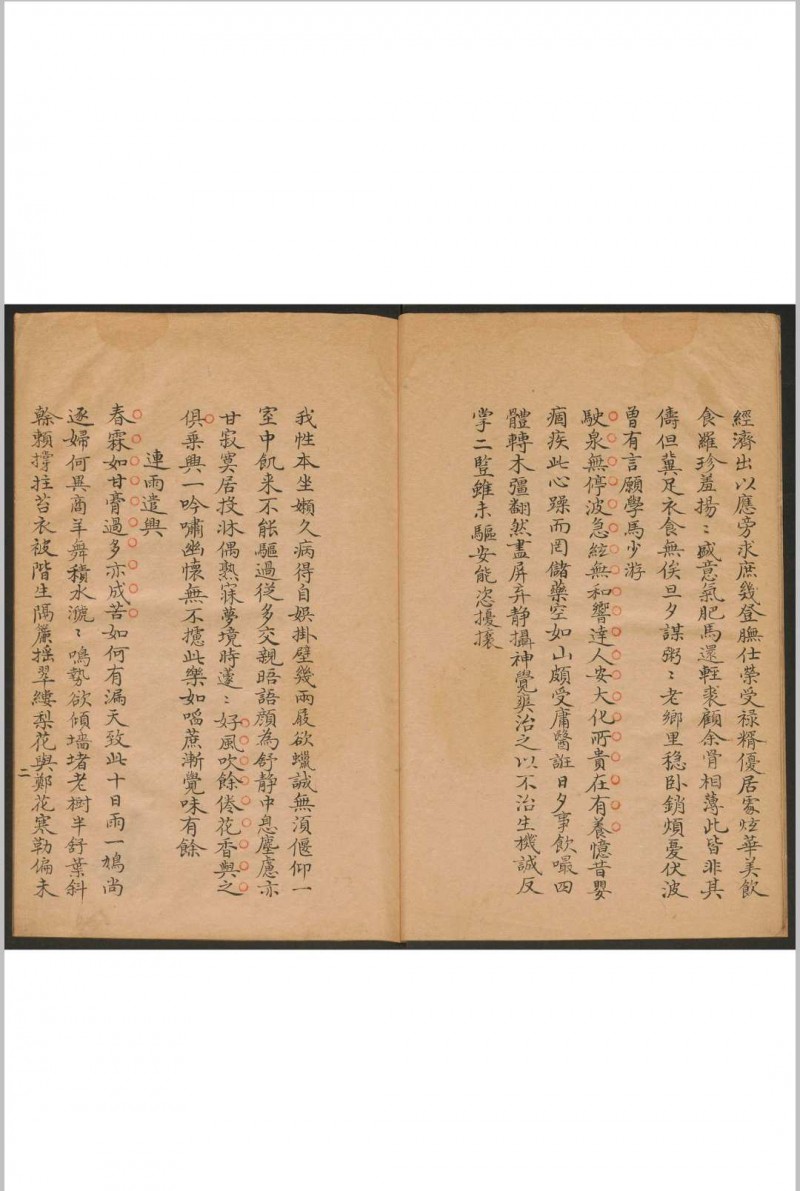 經濟出以應旁求庶幾登膴仕榮受禄糈優居處炫華美飲
食羅珍羞揚〻盛意氣肥馬還輕裘顧余骨相薄此皆非其
儔但冀足衣食無俟旦夕謀粥〻老鄉里穩卧銷煩憂伏波
曾有言願學馬少游
駛泉無停波急絃無和響達人安大化所貴在有養憶昔嬰
痼疾此心躁而罔儲藥空如山頗受庸醫誑日夕事飲㗖四
體轉木彊翻然盡屏弃静攝神覺爽治之以不治生機誠反
掌二豎雖未驅安能恣擾攘
我性本坐嬾久病得自娯掛壁幾兩屐欲蠟誠無須偃仰一
室中飢来不能驅過從多交親晤語顔為舒静中息塵慮亦
甘寂寞居投牀偶熟寐夢境時蘧〻好風吹餘倦花香與之
俱乗興一吟嘯幽懷無不攄此樂如啗蔗漸覺味有餘
連雨遣興
春霖如甘膏過多亦成苦如何有漏天致此十日雨一鳩尚
逐婦何異商羊舞積水㶁〻鳴勢欲傾墻堵老樹半舒葉斜
榦賴撐拄苔衣被階生隔簾摇翠縷梨花與鄭花寒勒偏未
二